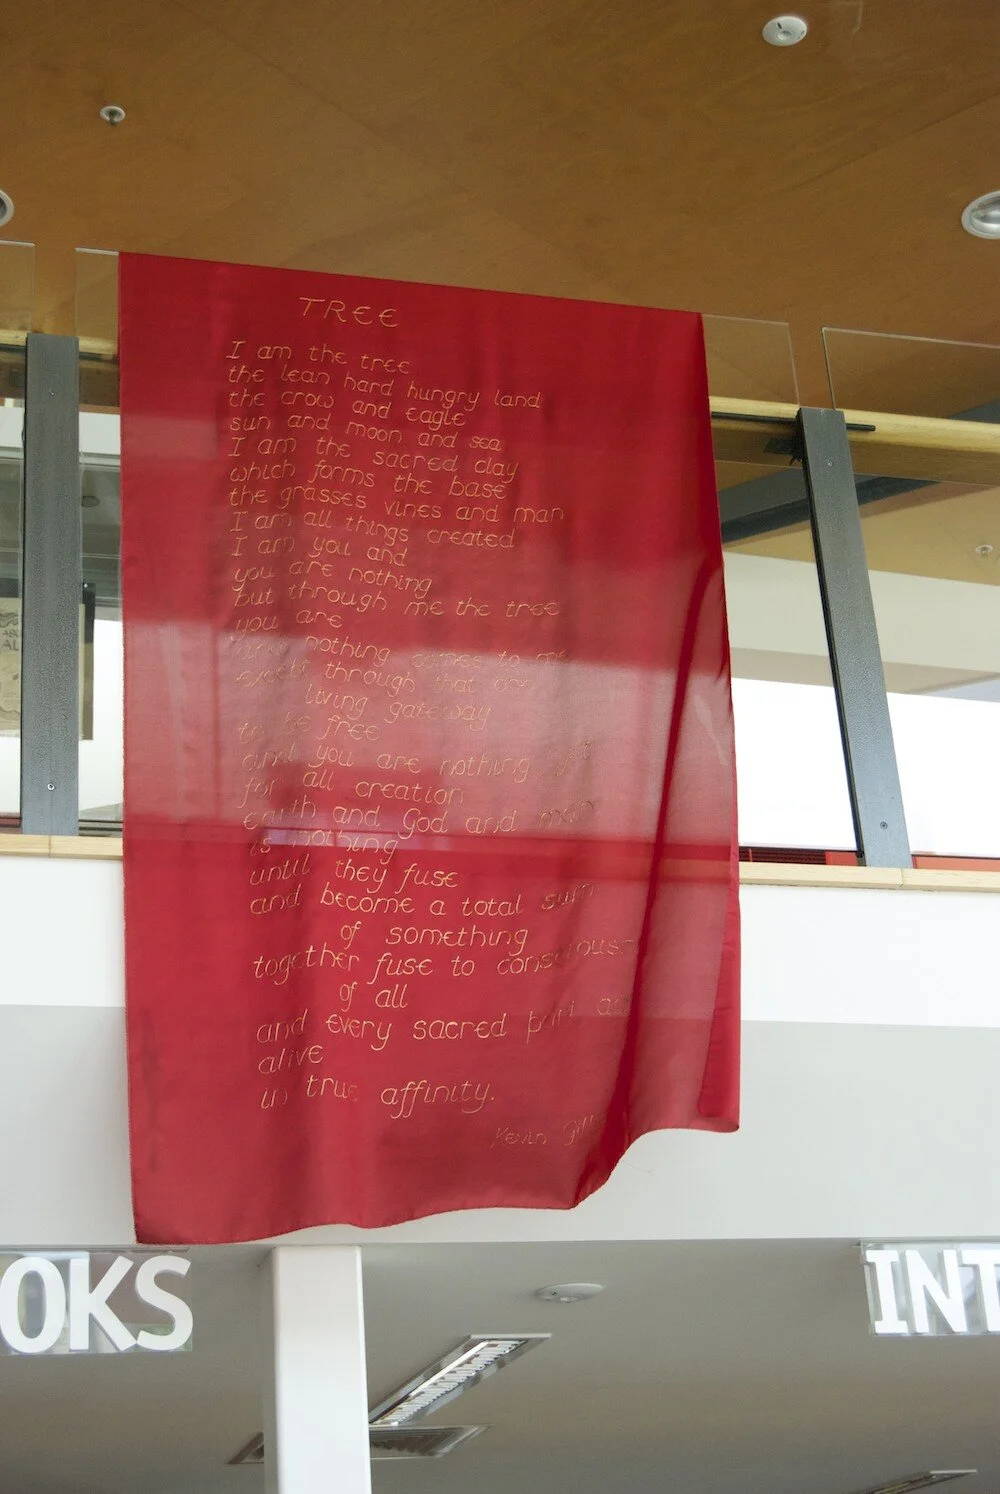 TREE
I am the tree
the lean hard hungry land
the crow and eagle
sun and moon and sea
I am the sacred clay
which forms the base
the grasses vines and man
I am all things created
I am you and
you are nothing
but through me the tree
you are
nothing comes to me
except through that one
living gateway
to be free
and you are nothing yet
for all creation
earth and God and man
is nothing
until they fuse
and become a total sum
of something
together fuse to consciousness
of all
and every sacred part aware
alive
in true affinity.
Kevin
OKS
INT